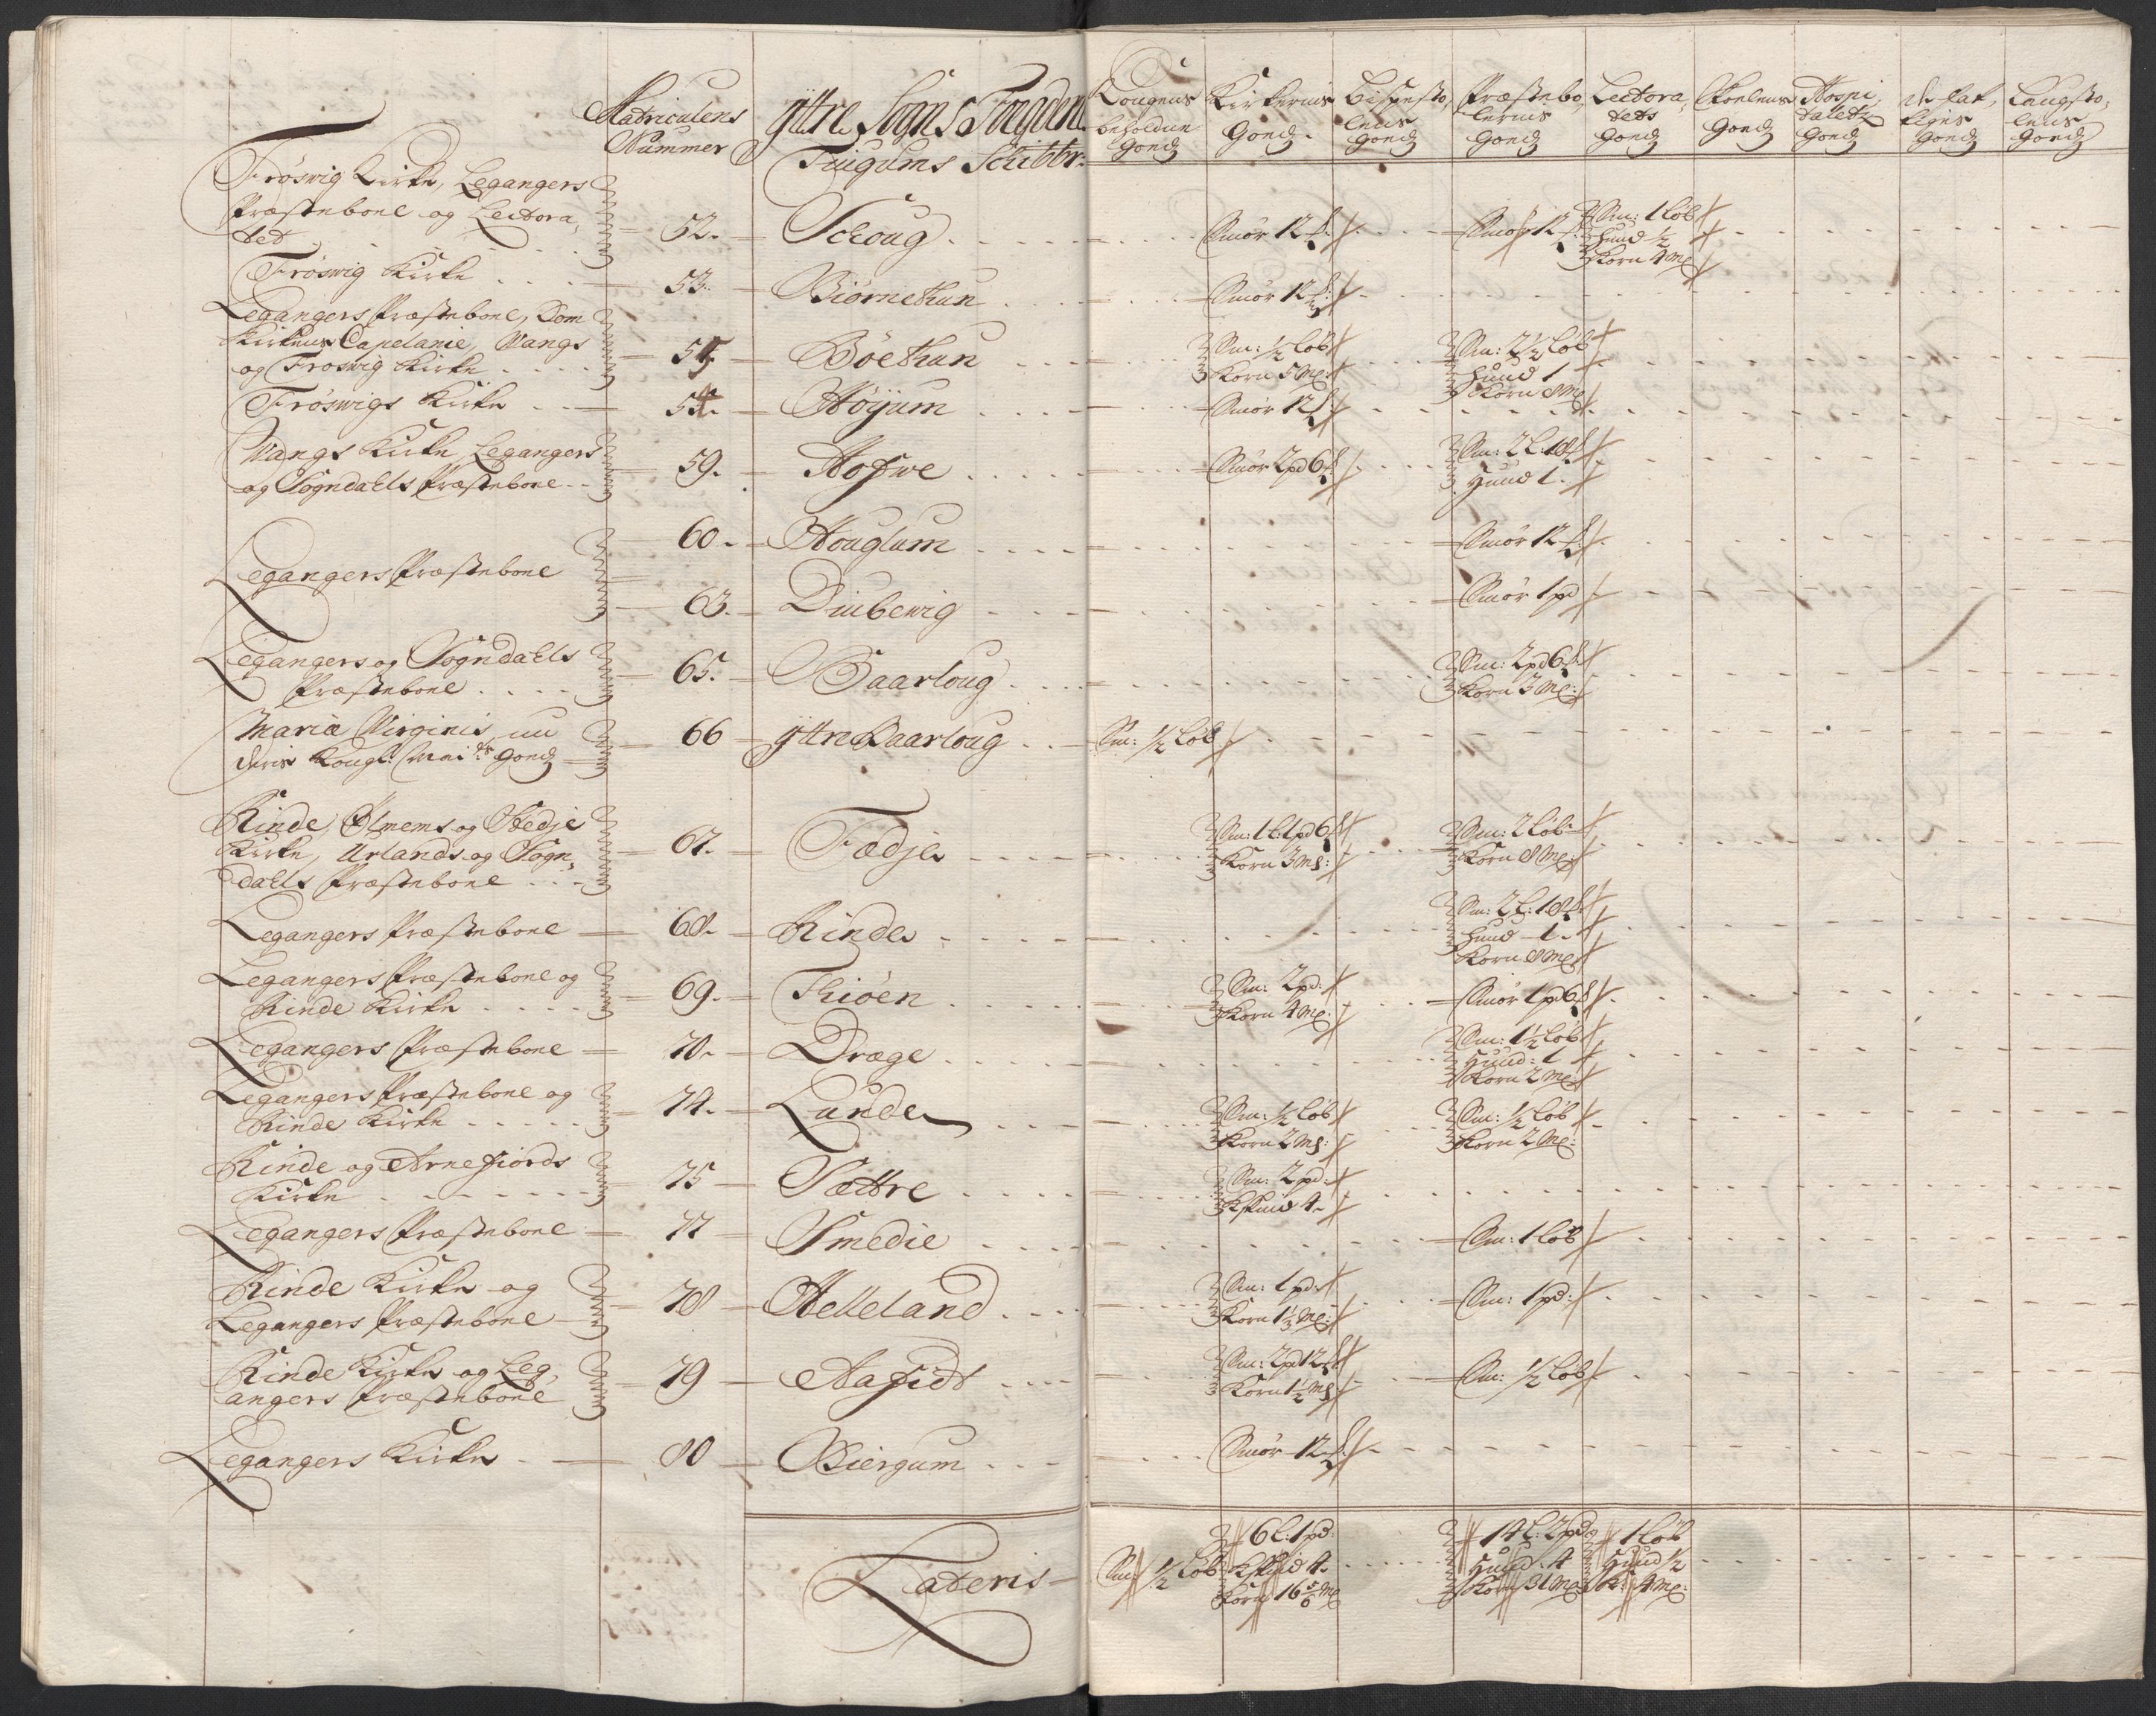 Matriculens
Nummer
Yttre Sogns Foegderie
Fingums Schibbr:
Kongens
beholdne
Goedz
Kirkernis
Goedz.
Bispesto,
lens
Goedz
Præstebo,
lernis
Goedz
Lectora,
tets
Goedz
Skoelens
Goedz
Hospi,
taletz
Goedz
Goedz
Laugsto,
lens
Goedz
Fröswig Kirke, Legangers
Præsteboel og Lectora,
tet
52.
Schoug
Smör 12 £.
Smör 12 £.
Sm: 1 löb
Huud ½
Korn 4 Mę
Fröswig Kirke
53.
Biörnethun
Smör 12 £:
Legangers Præsteboel, Dom
Kirkens Capelanie, Wangs
og Froswig Kirke
Böethun
Sm: ½ löb
Korn 5 Mę:
Sm: 2½ löb
Huud 1
Korn 8 Mę
Fröswigs Kirke
54.
Höyum
Smör 12 £:
Wangs Kirke, Legangers
og Sogndahls Præsteboel
59.
Hofwe
Smör 2 pd 6 £:
Sm: 2 l: 18 £
Huud 1.
60.
Houglum
Smör 12 £:
Legangers Præsteboel
63.
Diubewig
Smör 1 pd
Legangers og Sogndahls
Præsteboel
65.
Baarloug
Sm: 2 pd 6 £:
Korn 3 Mę:
Mariæ Virginis, nu
deris Kongl: Mai:ts Goedz
66
Yttre Baarloug
Sm: ½ löb
Rinde, Ølmems og Stedje
Kirke, Urlands og Sogn,
dahls Præsteboel
67.
Fædje
Sm: 1 l: 1 pd 6 £
Korn 3 Mę:
Sm: 2 löb
Korn 8 Mę:
Legangers Præsteboel
68.
Rinde
Sm: 2 l: 18 £.
Huud 1.
Korn 8 Mę
Legangers Præsteboel og
Rinde Kirke
69.
Thiöen
Sm: 2 pd:
Korn 4 Mę:
Smör 1 pd 6 £
Legangers Præsteboel
70.
Dræge
Sm: 1½ löb
Huud: 1
Korn 2 Mę
Legangers Præsteboel og
Rinde Kirke
74.
Lunde
Sm: ½ löb
Korn 2 Mę:
Sm: ½ löb
Korn 2 Mę:
Rinde og Arnefiords
Kirke
75
Sættre
Sm: 2 pd:
Kskind 4.
Legangers Præsteboel
77
Smedie
Sm: 1 löb
Rinde Kirke og
Legangers Præsteboel
78
Helleland
Sm: 1 pd:
Korn 1⅓ Mę:
Sm: 1 pd:
Rinde Kirke og Leg,
angers Præsteboel
79
Aafidt
Sm: 2 pd 12 £
Korn 1½ Mę
Sm: ½ löb
Legangers Kirke
80
Biergum
Smör 12 £.
Lateris
Sm: ½ löb
6 l: 1 pd:
Kskind 4.
Korn 16 5/6 Mę
14 l: 2 pd
Huud 4
Korn 31 Mę
1 löb
Huud ½
K: 4 Mę: